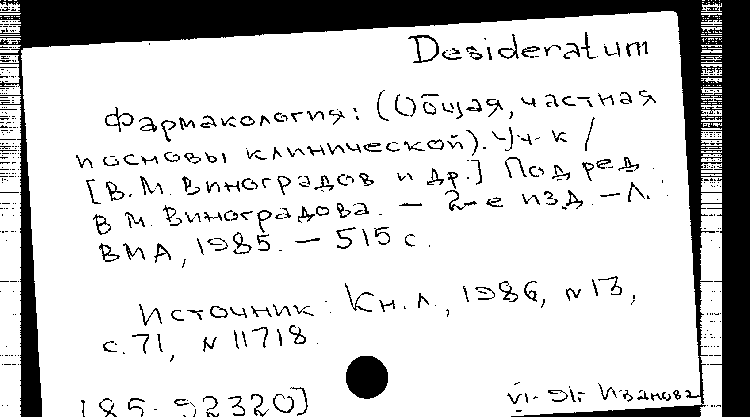 Desideratum
Фармакология: (Общая, частная
и основы клинической). Уч-к /
[В.М. Виноградов и др.] Под ред.
В М. Виноградова. — 2-е изд. — Л.:
ВМА, 1985. — 515 с.
Источник: Кн.л., 1986, № 13,
с. 71, № 11718
[85-92320]
VI-91г Иванова